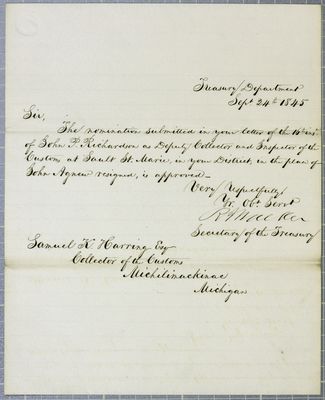 Treasury Department
Sept 24th 1845
Sir,
The nomination submitted in your letter of the 15th inst
of John P. Richardson as Deputy Collector and Inspector of the
Customs at Sault St. Marie, in your District, in the place of
John Agnew resigned, is approved—
Very Respectfully
Yr Obt Servt
R J Walker
Secretary of the Treasury
Samuel K Harring Esq
Collector of the Customs
Michilimackinac
Michigan